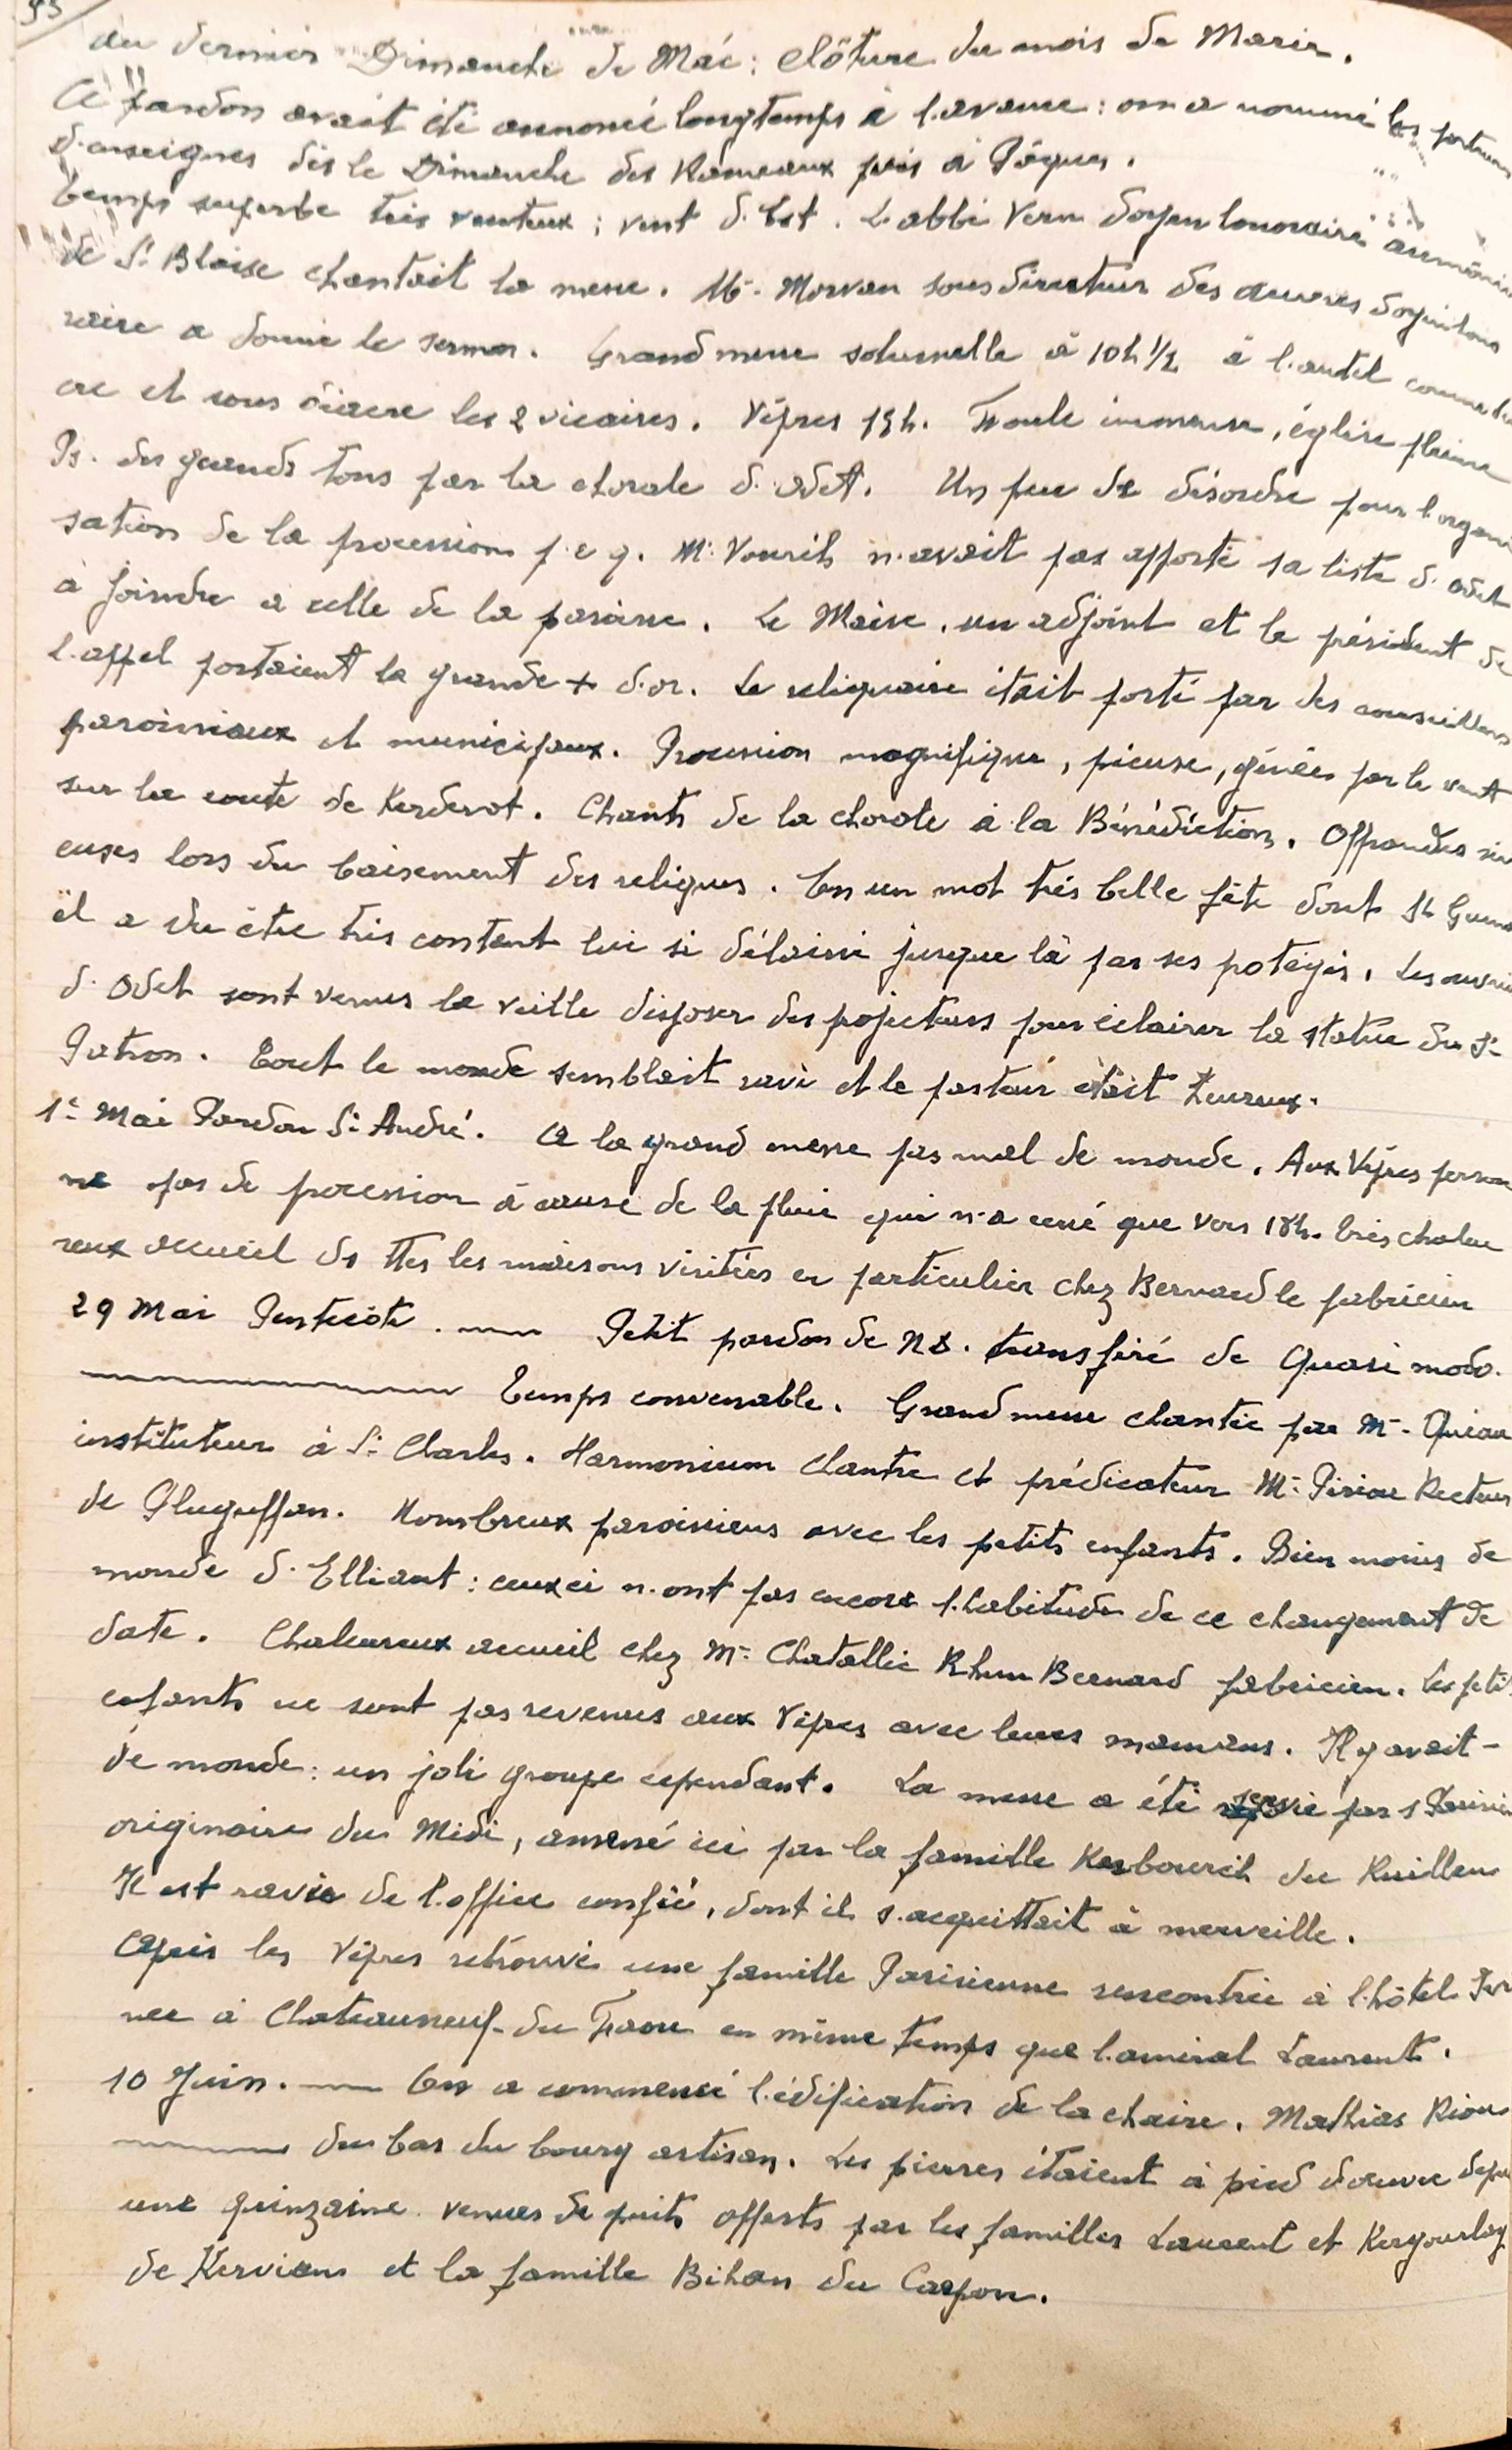 95
au dernier Dimanche de Mai : clôture du mois de Marie.
Ce pardon avait été annoncé longtemps à l'avance : on a nommé les porteurs
d'enseignes dès le Dimanche des Rameaux puis à Pâques.
Temps superbe très venteux ; vent d'Est. L'abbé Vern doyen honoraire aumônier
de St Blaise chantait la messe. Mr. Morvan sous directeur des œuvres doyen hono
raire a donné le sermon. Grand messe solennelle à 10h ½ à l'autel comme dia
cre et sous diacre les 2 vicaires. Vêpres 15h. Foule immense, église pleine
Ps. des grands tons par la chorale d'Odet. Un peu de désordre pour l'organi
sation de la procession p.c.q. Mr Vourih n'avait pas apporté sa liste d'Odet
à joindre à celle de la paroisse. Le Maire, un adjoint et le président de
l'appel portaient la grande + d'or. Le reliquaire était porté par des conseillers
paroissiaux et municipaux. Procession magnifique, pieuse, gênée par le vent
sur la route de Kerdevot. Chants de la chorale à la Bénédiction. Offrandes
euses lors du baisement des reliques. En un mot très belle fête dont St
il a du être très content lui si délaissé jusque là par ses protégés. Les ouvriers
d'Odet sont venus la veille disposer des projecteurs pour éclairer la statue du St
Patron. Tout le monde semblait ravi et le pasteur était heureux.
1er Mai Pardon St André. A la grand messe pas mal de monde. Aux Vêpres person
ne pas de procession à cause de la pluie qui n'a cessé que vers 18h. Très chaleu
reux accueil ds ttes les maisons visitées en particulier chez Bernard le fabricien
29 Mai Pentecôte. Petit pardon de ND. transféré de Quasi modo.
Temps convenable. Grand messe chantée par Mr. Quéau
instituteur à St Charles. Harmonium chantre et prédicateur Mr Piriou Recteur
de Pluguffan. Nombreux paroissiens avec les petits enfants. Bien moins de
monde d'Elliant : ceux ci n'ont pas encore l'habitude de ce changement de
date. Chaleureux accueil chez Mr Chatallic Rhun Bernard fabricien. Les petits
enfants ne sont pas revenus aux Vêpres avec leurs mamans. Il y avait -
de monde : un joli groupe cependant. La messe a été servie par 1 Parisien
originaire du Midi, amené ici par la famille Kerbourch du Ruillen
Il est ravi de l'office confié, dont il s'acquittait à merveille.
Après les Vêpres retrouvé une famille Parisienne rencontrée à l'hôtel
à Chateauneuf-du Faou en même temps que l'amiral Laurent.
10 Juin. On a commencé l'édification de la chaire. Mathias Riou
du bas du bourg artisan. Les pierres étaient à pied d'œuvre depuis
une quinzaine venues de puits offerts par les familles Laurent et Kergourlay
de Kerviens et la famille Bihan du Carpon.